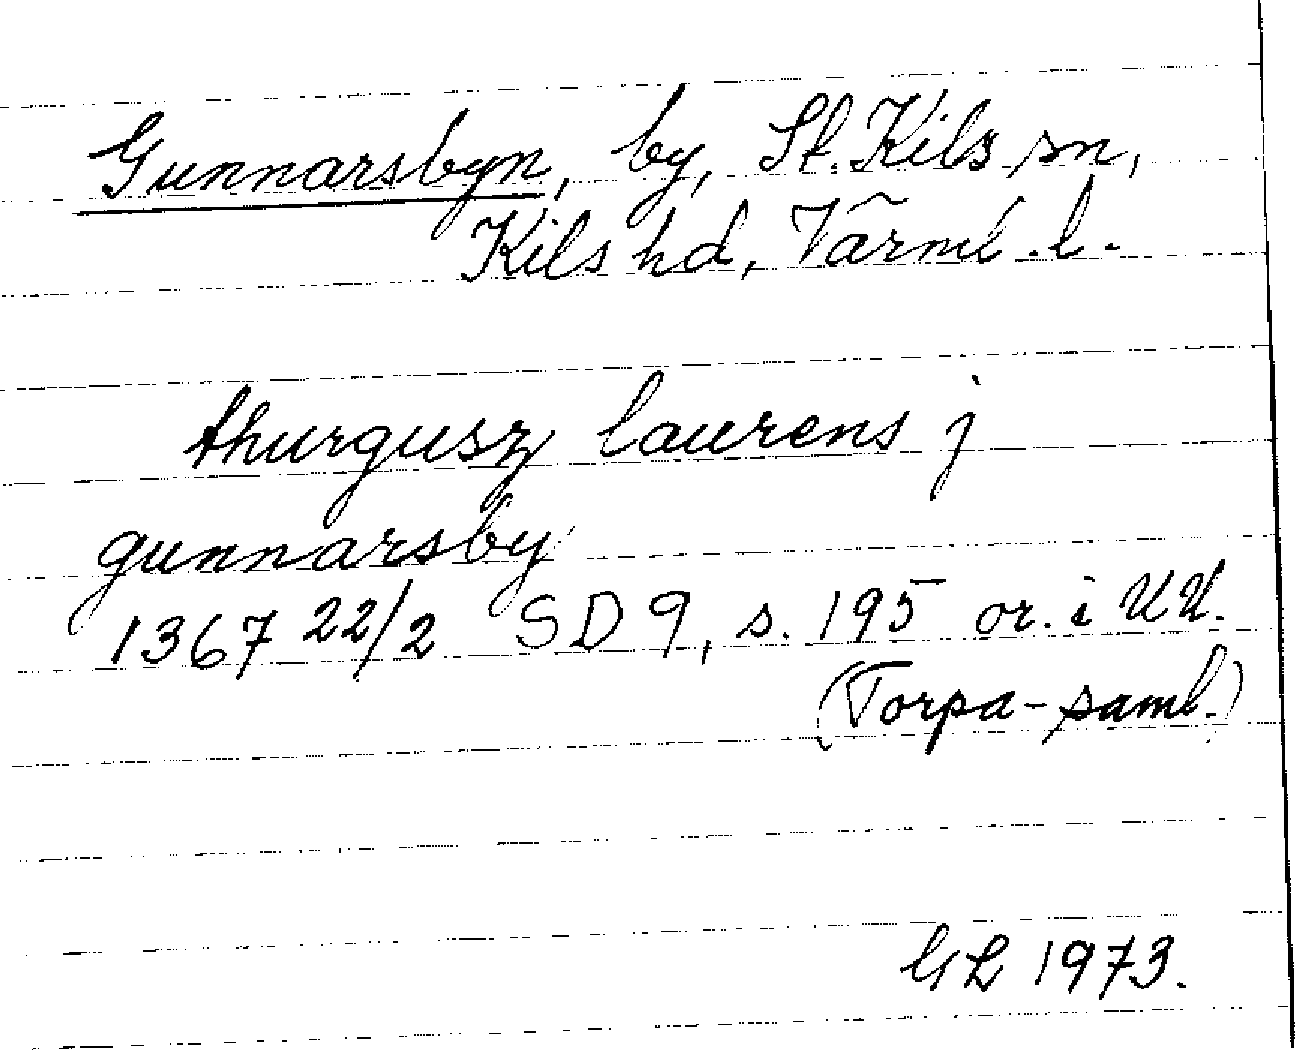 Gunnarsbyn, by, St. Kils sn,
Kils hd, Värml. l.
thurgusz laurens j
gunnarsby
1367 22/2 SD 9, s. 195 or. i UU.
(Torpa-saml.)
GL 1973.